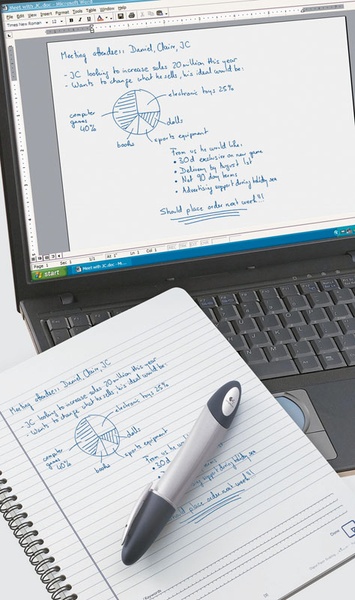 Meet with JC.doc - M
File Edit View Insert Format Tools Table Window Help
Times New Roman 12
Meeting attendees: Daniel, Claire, JC
- JC looking to increase sales 20 million this year
- Wants to change what he sells, his ideal would be:
electronic toys 25%
computer games 40%
dolls
sports equipment
books
From us he would like:
• 30d exclusive on new game
• Delivery by August 1st
• Net 90 day terms
• Advertising support during holiday
Should place order next week!!
Page 1 Sec 1 1/1 At 1" Ln 1 Col 1
start
Meet with JC.doc - M
Meeting attendees: Daniel, Claire, JC
- JC looking to increase sales 20 million this year
- Wants to change what he sells, his ideal would be:
electronic toys 25%
computer games 40%
dolls
sports equipment
books
From us he would
• 30d
support during holiday
place order next week!!